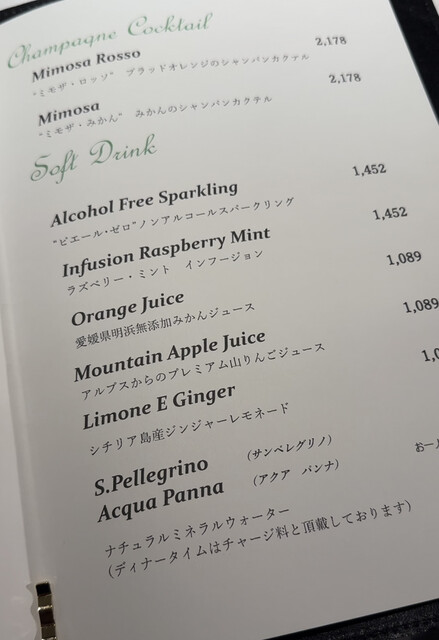 Champagne Cocktail
Mimosa Rosso 2,178
“ミモザ・ロッソ” ブラッドオレンジのシャンパンカクテル
Mimosa 2,178
“ミモザ・みかん” みかんのシャンパンカクテル
Soft Drink
Alcohol Free Sparkling 1,452
“ピエール・ゼロ”ノンアルコールスパークリング
Infusion Raspberry Mint 1,452
ラズベリー・ミント インフージョン
Orange Juice 1,089
愛媛県明浜無添加みかんジュース
Mountain Apple Juice 1,089
アルプスからのプレミアム山りんごジュース
Limone E Ginger 1,0
シチリア島産ジンジャーレモネード
S.Pellegrino (サンペレグリノ)
Acqua Panna (アクア パンナ) お一
ナチュラルミネラルウォーター
(ディナータイムはチャージ料と頂戴しております)